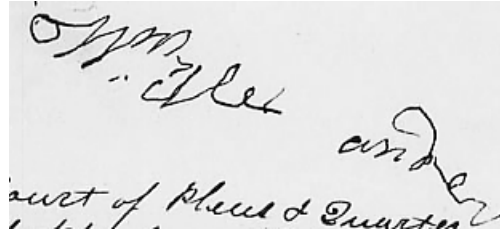 Wm Alexander
ourt of Pleas & Quarter